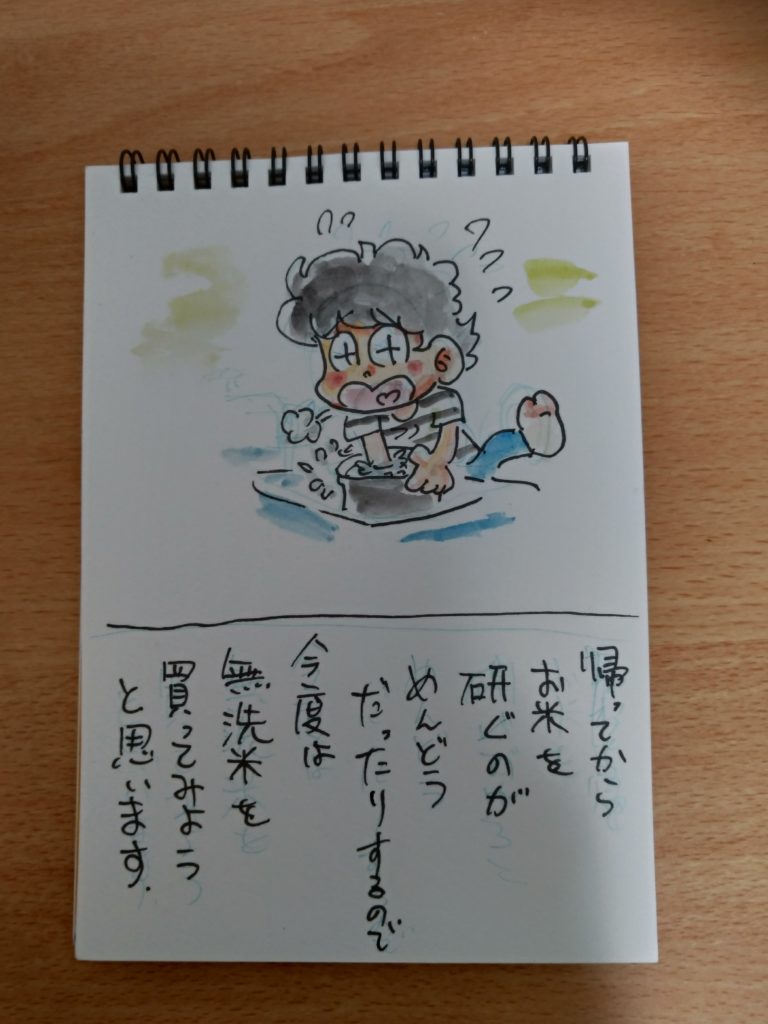 帰ってから
お米を
研ぐのが
めんどう
だったりするので
今度は
無洗米を
買ってみよう
と思います.